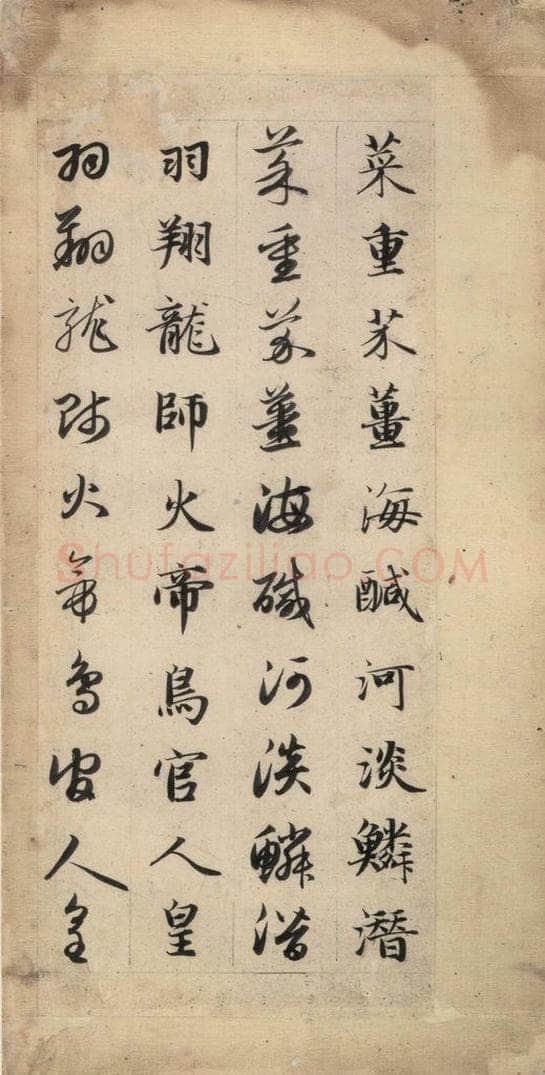 菜重芥薑海醎河淡鱗潛
菜重芥薑海醎河淡鱗潛
羽翔龍師火帝鳥官人皇
羽翔龍師火帝鳥官人皇
Shufaziliao.COM